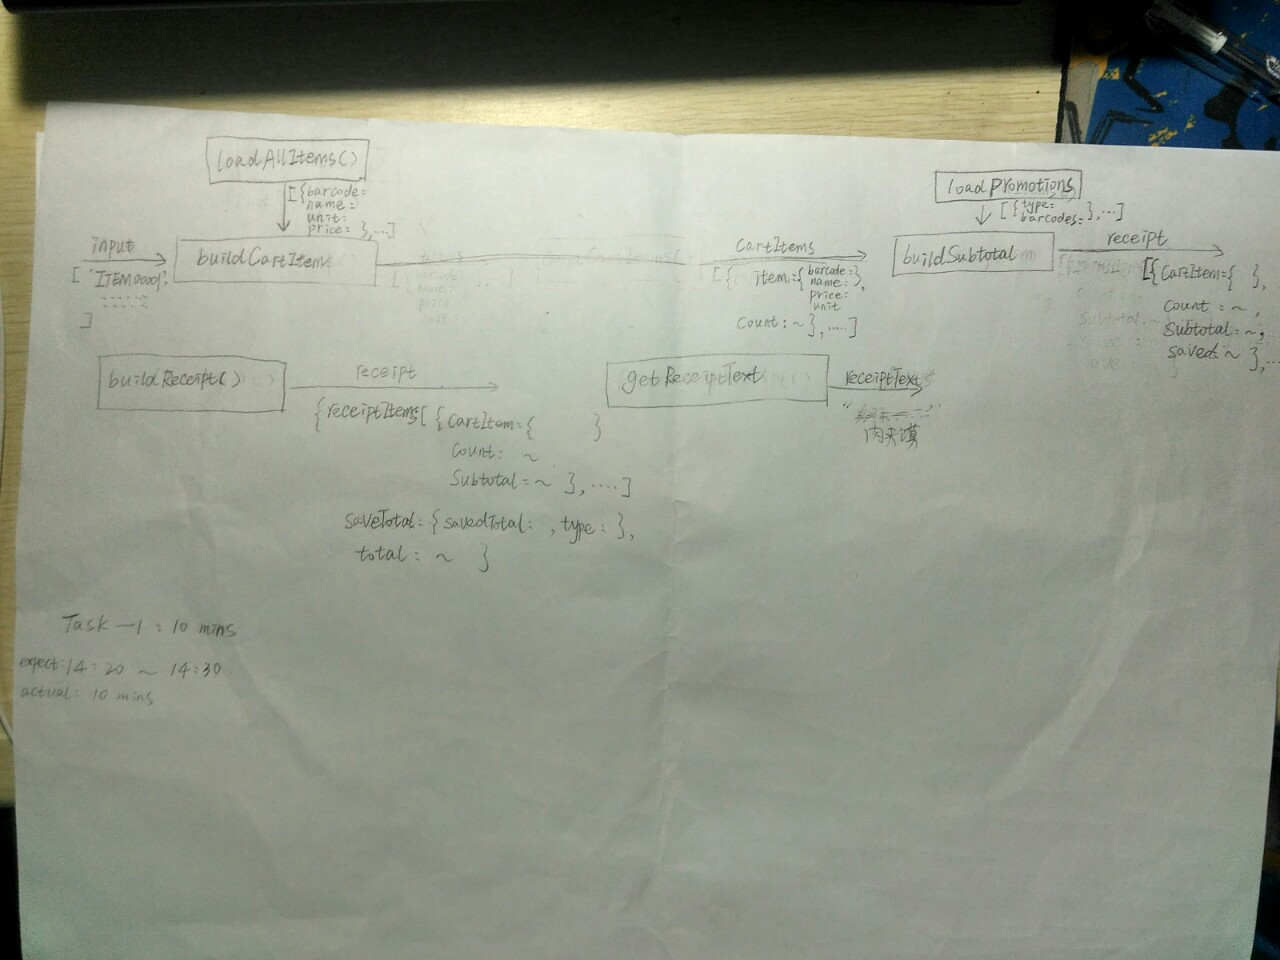 loadAllItems()
[{barcode:
name:
unit:
price: },...]
input
['ITEM00001',
]
buildCartItems
CartItems
[{item:{barcode:
name:
price:
unit },
Count: ~ },....]
loadPromotions
[{type:
barcodes: },...]
buildSubtotal
receipt
[{CartItem={ },
Count: ~,
Subtotal: ~,
saved: ~ },...
buildReceipt()
receipt
{receiptItems[{CartItem:{ }
Count: ~
Subtotal: ~ },....]
saveTotal: {savedTotal: , type: },
total: ~ }
getReceiptText
receiptText
肉夹馍
Task —1: 10 mins
expect: 14:20 ~ 14:30
actual: 10 mins